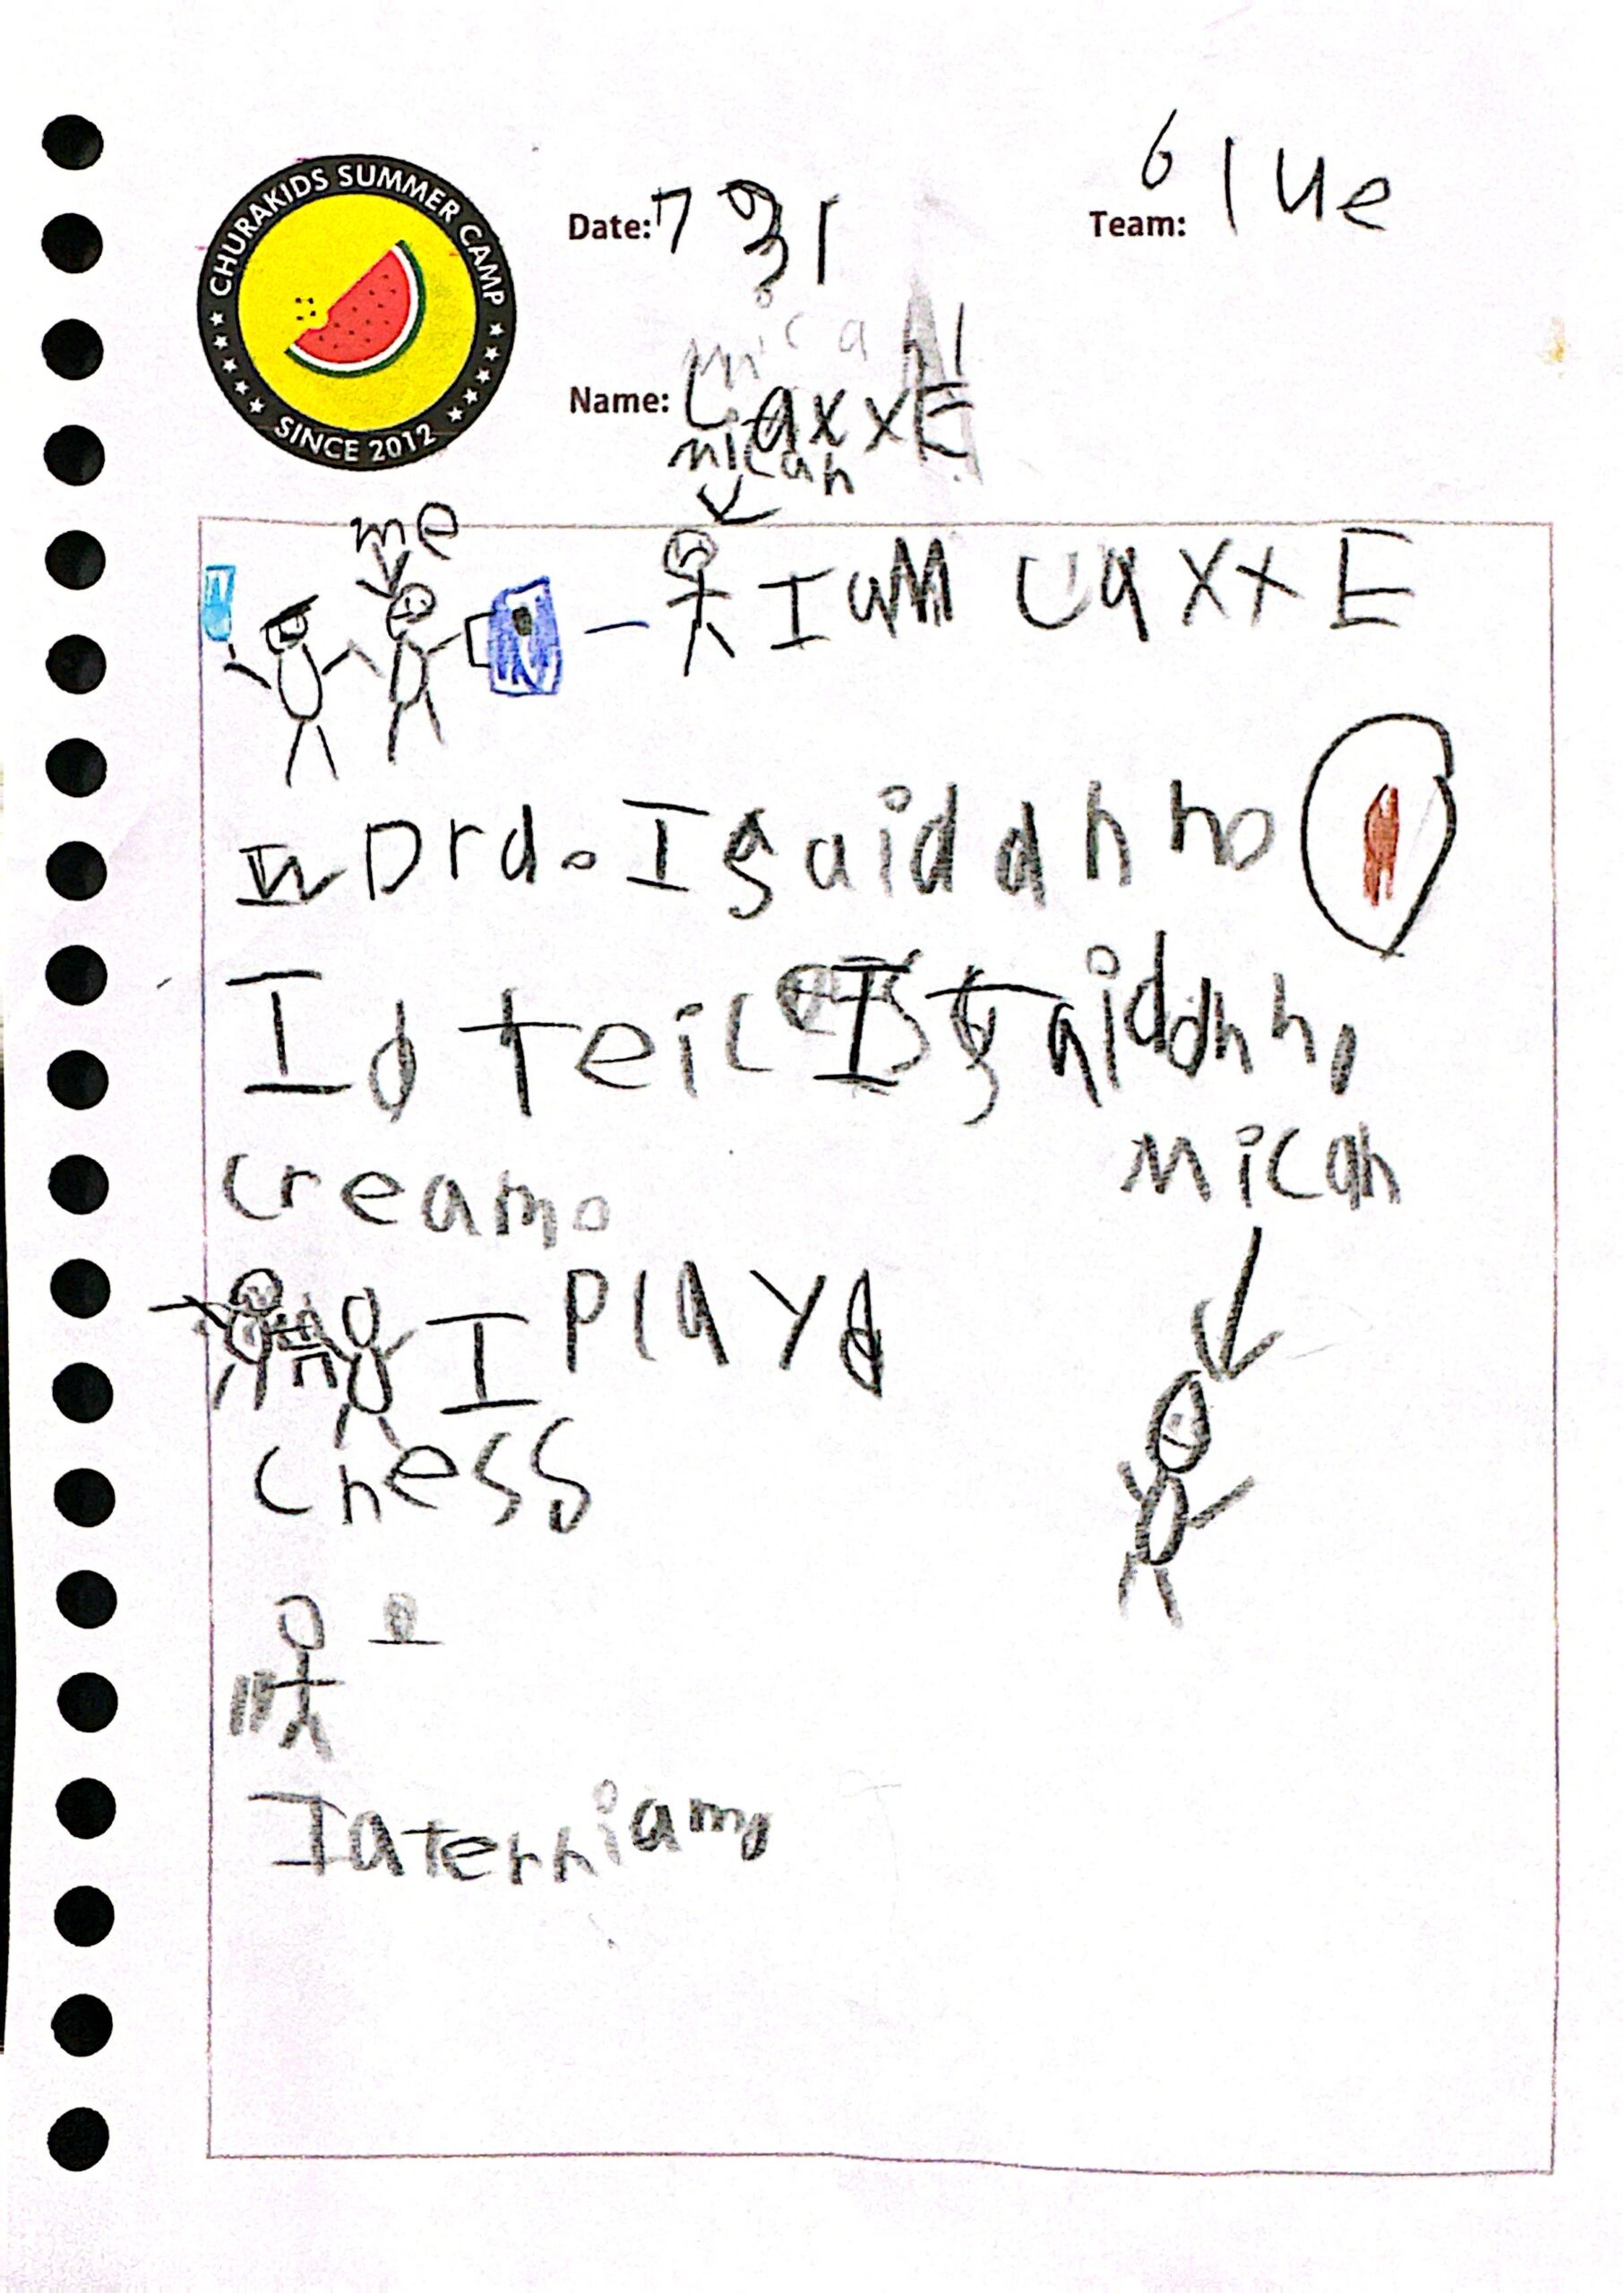 CHURAKIDS SUMMER CAMP
SINCE 2012
Date: 7 31
Team: blue
mica
Name: LaxxE
micah
me
I am LaxxE
word. I said ahho
I ateice I saidahho
cream.
micah
I playd
chess
Iatehham.